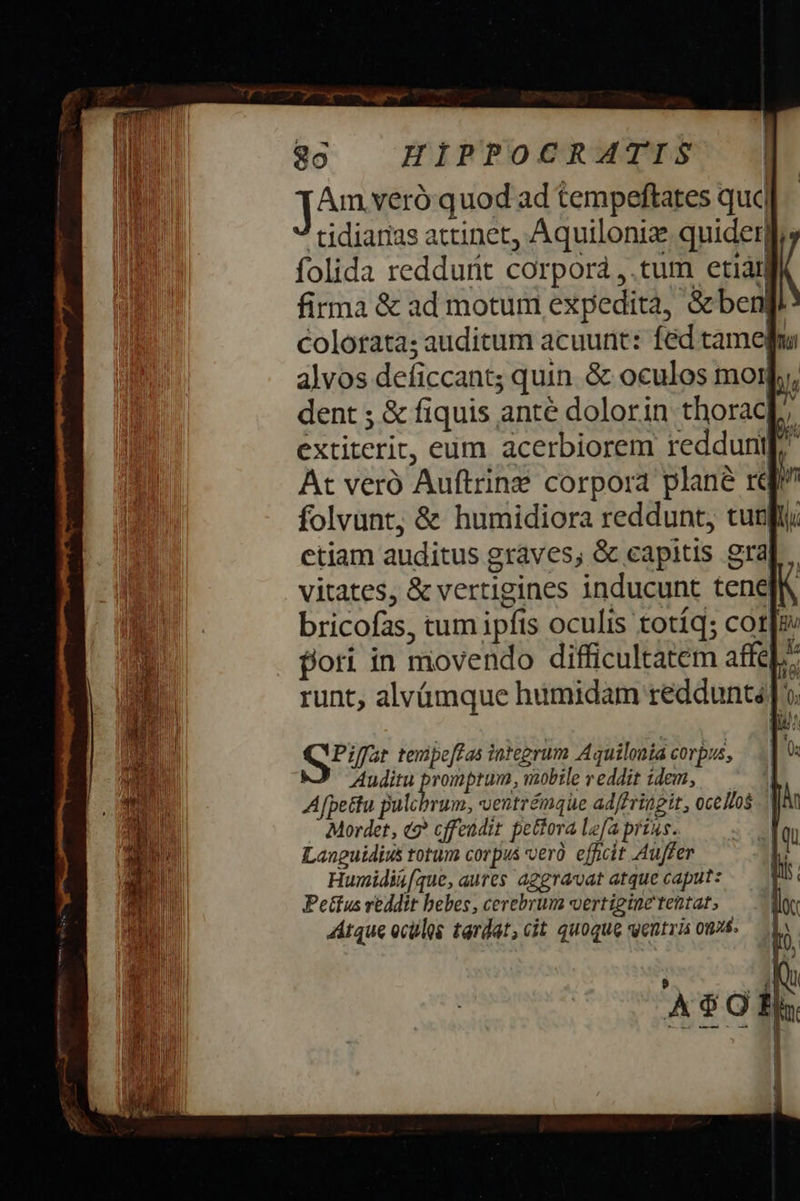 80 HIPPOCRATIS
JAm verò quod ad tempeſtates quo
tidianas attinet, Aquiloniæ quidem
ſolida reddunt corpora, tum etiam
firma & ad motum expedita, & bene
colorata; auditum acuunt: ſed tamen
alvos deſiccant; quin & oculos mor
dent; & ſiquis antè dolor in thorac
extiterit, eum acerbiorem reddunt
At verò Auſtrinæ corpora planè re
ſolvunt, & humidiora reddunt, tum
etiam auditus graves, & capitis gra
vitates, & vertigines inducunt tene
bricoſas, tum ipſis oculis totíq; cor
pori in movendo difficultatem affe
runt, alvúmque humidam reddunt.
SPiſſat tempeſtas integrum Aquilonia corpus,
Auditu promptum, mobile reddit idem,
Aſpectu pulchrum, ventrémque adſtringit, ocellos
Mordet, & offendit pectora læſa priùs.
Languidius totum corpus verò efficit Auſter
Humidiúſque, aures aggravat atque caput:
Pectus reddit hebes, cerebrum vertigine tentat,
Atque oculos tardat, cit quoque ventris onus.
ΑΦΟΡ